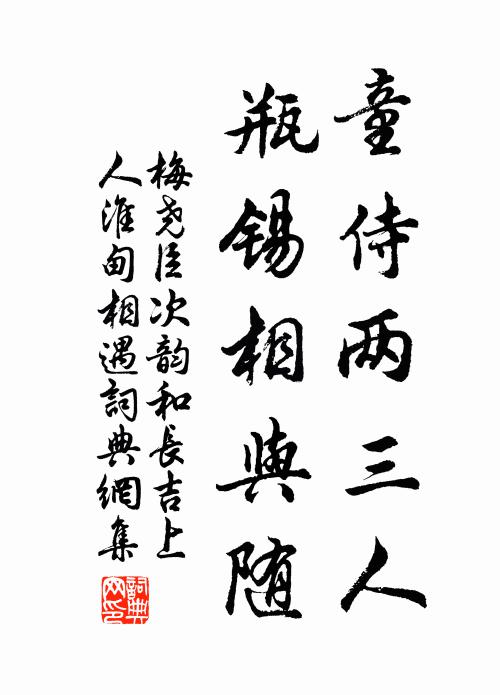 童侍两三人
瓶锡相與随
梅尧臣次韵和長吉上
人淮甸相遇詞典網集
詞典
网印